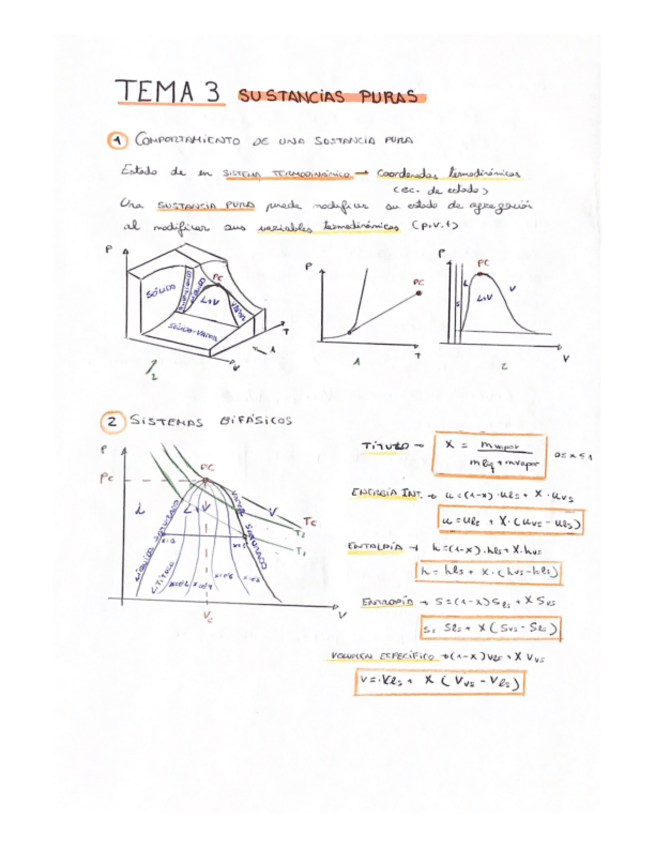 TEMA 3 SUSTANCIAS PURAS
1 COMPORTAMIENTO DE UNA SUSTANCIA PURA
Estado de un SISTEMA TERMODINÁMICO → Coordenadas termodinámicas
(ec. de estado)
Una SUSTANCIA PURA puede modificar su estado de agregación
al modificar sus variables termodinámicas (p,v,t)
P
SÓLIDO
L+V
SÓLIDO-VAPOR
PC
T
V
1
2
P
PC
T
1
P
PC
S
L
L+V
V
V
2
2 SISTEMAS BIFÁSICOS
P
Pc
PC
L
L+V
V
LÍQUIDO SATURADO
VAPOR SATURADO
TÍTULO
Tc
T2
T1
Vc
V
TÍTULO → X = mvapor / mliq + mvapor
0≤x≤1
ENERGÍA INT. → u=(1-x)·uls + X·uvs
u = uls + X·(uvs - uls)
ENTALPÍA → h=(1-x)·hls + X·hvs
h = hls + X·(hvs-hls)
ENTROPÍA → S=(1-x)Sls + X Svs
S= Sls + X(Svs - Sls)
VOLUMEN ESPECÍFICO →(1-x)vls + X Vvs
V = Vls + X (Vvs - Vls)